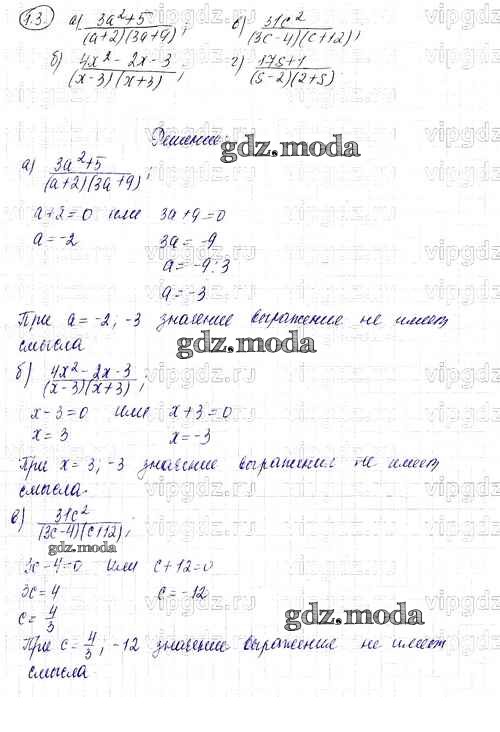 1.3. а) (3a²+5)/((a+2)(3a+9)); в) 31c²/((3c-4)(c+12));
б) (4x²-2x-3)/((x-3)(x+3)); г) (17s+1)/((s-2)(2+s))
Решение:
gdz.moda
а) (3a²+5)/((a+2)(3a+9));
a+2=0 или 3a+9=0
a=-2 3a=-9
a=-9:3
a=-3
При a=-2; -3 значение выражение не имеет
смысла
gdz.moda
б) (4x²-2x-3)/((x-3)(x+3));
x-3=0 или x+3=0
x=3 x=-3
При x=3; -3 значение выражения не имеет
смысла.
в) 31c²/((3c-4)(c+12));
gdz.moda
3c-4=0 или c+12=0
3c=4 c=-12
c=4/3
gdz.moda
При c=4/3; -12 значение выражение не имеет
смысла
vipgdz.ru